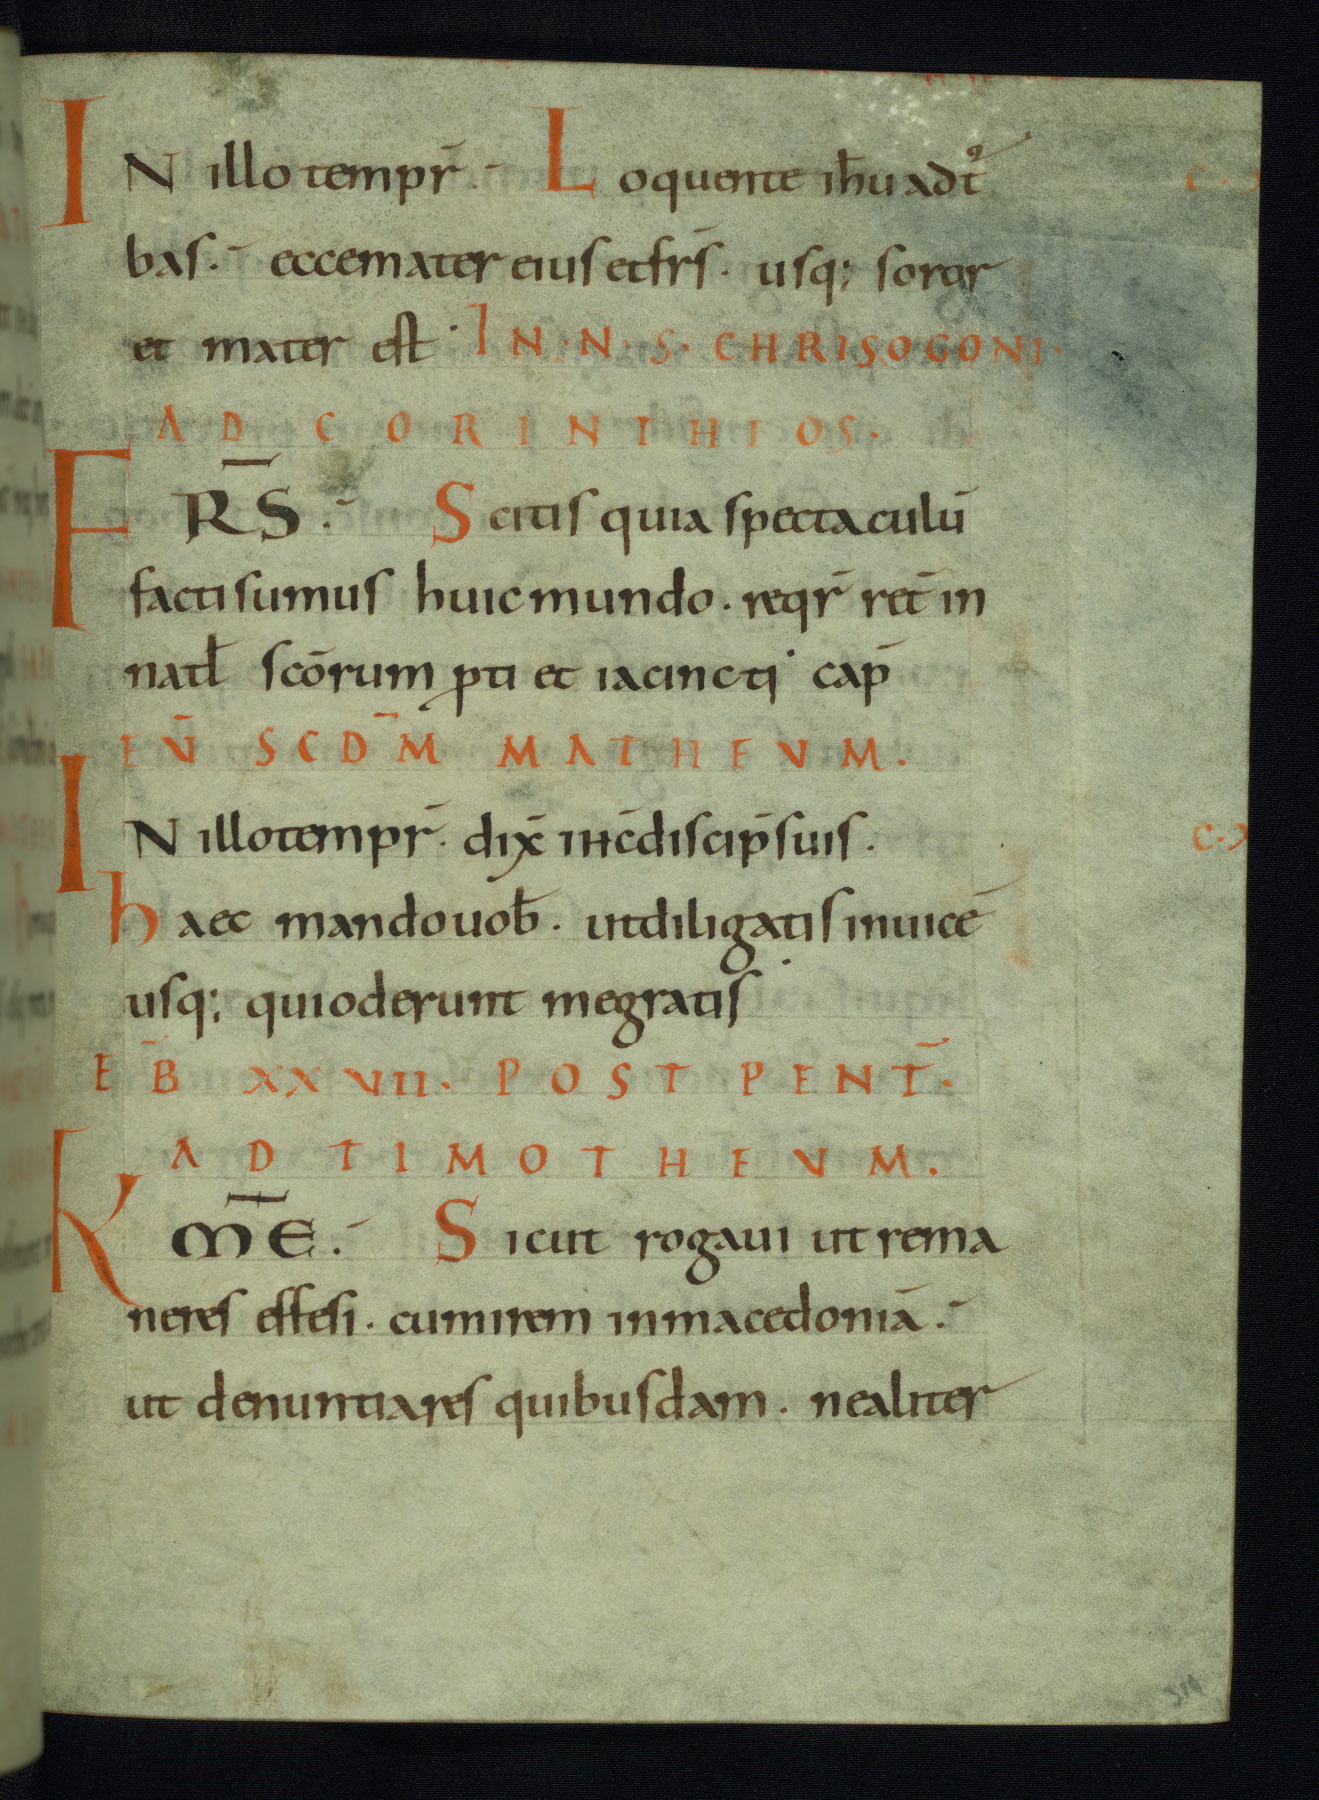 IN illo tempr̄. Loquente ih̄u ad t᷒
bas. ecce mater eius et frs̄. usq; soror
et mater est. IN · N · S · CHRISOGONI ·
AD CORINTHIOS.
FRS̄. Scitis quia spectaculū
facti sumus huic mundo. reqr̄ ret̄ in
natł scōrum ꝓti et iacincti cap̄
EV̄ SCD̄M MATHEVM.
IN illo tempr̄. dix̄ ihc̄ discip̄ suis.
haec mando uob̄. ut diligatis inuicē
usq; qui oderunt me gratis
EB̄ XXVII. POST PENT̄.
AD TIMOTHEVM.
KM̄E. Sicut rogaui ut rema
neres effesi. cum irem in macedoniā.
ut denuntiares quibusdam. ne aliter